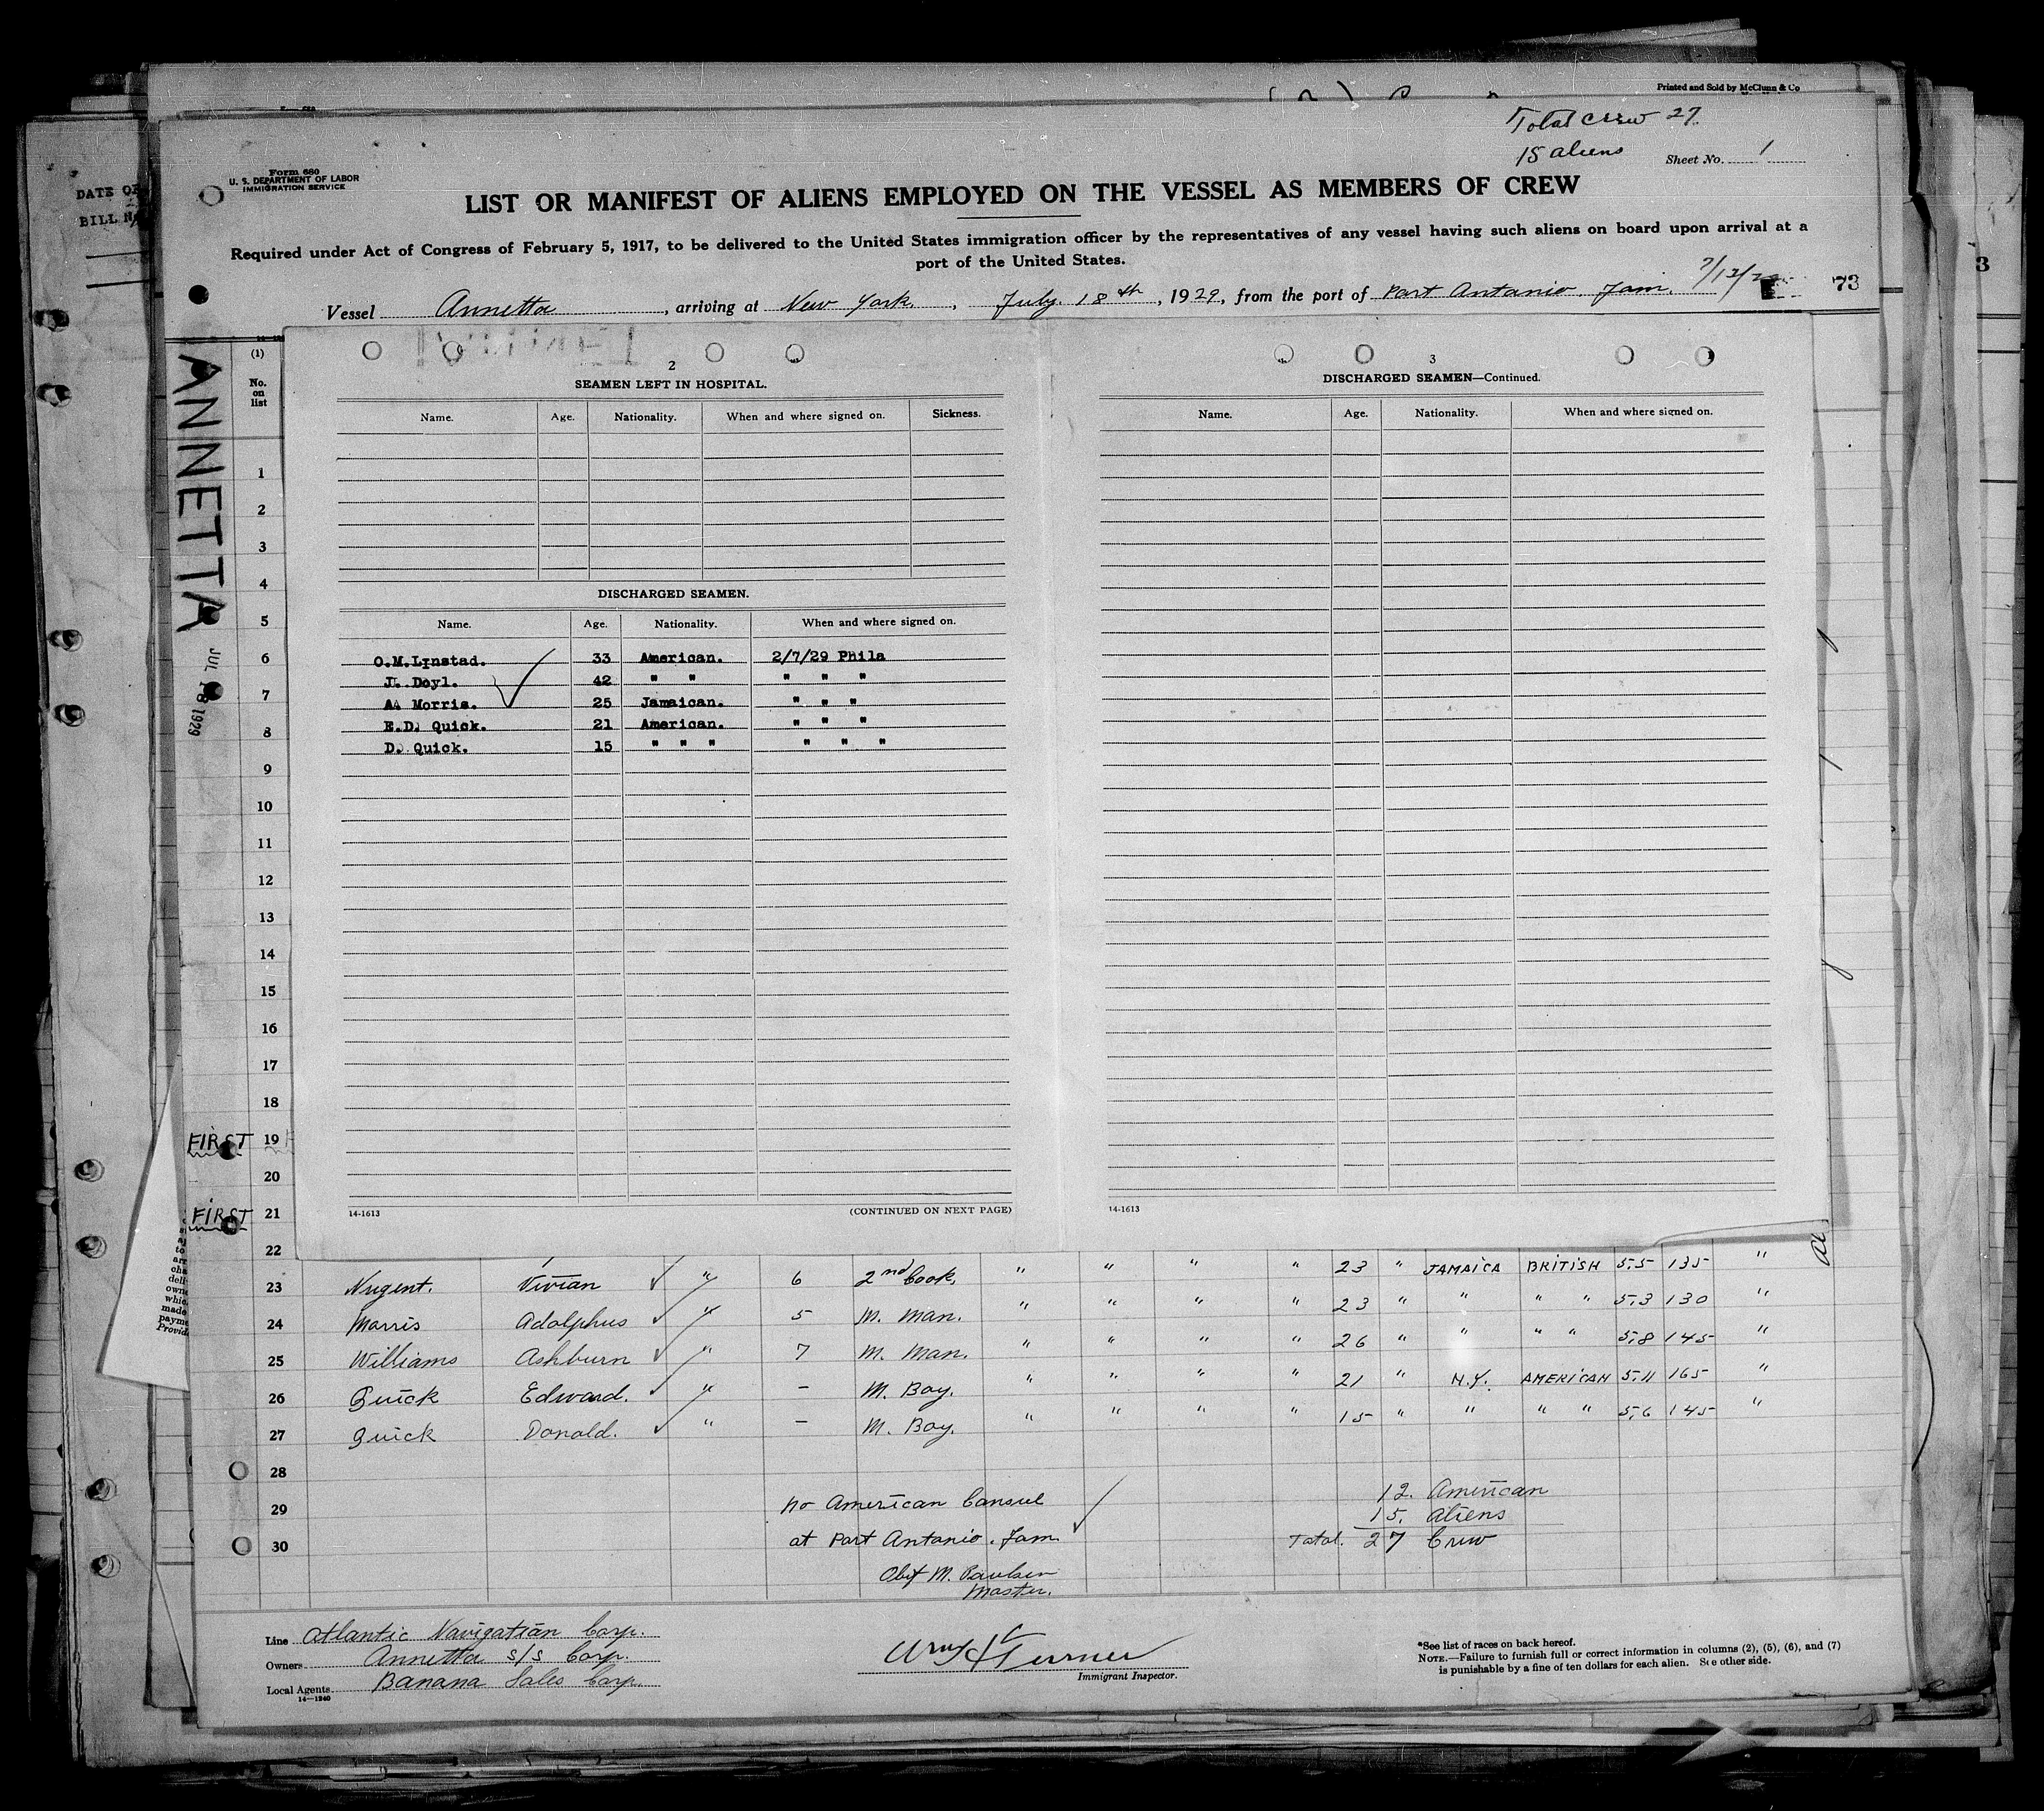 Printed and Sold by McClunn & Co
Total Crew 27
15 aliens
Sheet No. 1
Form 680
U. S. DEPARTMENT OF LABOR
IMMIGRATION SERVICE
DATE OF
BILL
LIST OR MANIFEST OF ALIENS EMPLOYED ON THE VESSEL AS MEMBERS OF CREW
Required under Act of Congress of February 5, 1917, to be delivered to the United States immigration officer by the representatives of any vessel having such aliens on board upon arrival at a
port of the United States.
Vessel Annetta, arriving at New York, July 18th, 1929, from the port of Port Antonio Jam. 7/12/
73
3
ANNETTA
JUL 18 1929
(1)
No. on list
2
SEAMEN LEFT IN HOSPITAL.
Name. Age. Nationality. When and where signed on. Sickness.
DISCHARGED SEAMEN.
Name. Age. Nationality. When and where signed on.
O.M.Linstad. 33 American. 2/7/29 Phila
J. Doyl. 42 " " " " "
A. Morris. 25 Jamaican. " " "
E.D. Quick. 21 American. " " "
D. Quick. 15 " " " " " "
14-1613 (CONTINUED ON NEXT PAGE)
3
DISCHARGED SEAMEN—Continued.
Name. Age. Nationality. When and where signed on.
14-1613
1
2
3
4
5
6
7
8
9
10
11
12
13
14
15
16
17
18
FIRST 19
20
FIRST 21
22
23 Nugent. Vivian " 6 2nd Cook. " " " " 23 " JAMAICA BRITISH 5.5 135 "
24 Morris Adolphus " 5 M. Man. " " " " 23 " " " " 5.3 130 "
25 Williams Ashburn " 7 M. Man. " " " " 26 " " " " 5.8 145 "
26 Quick Edward. " – M. Boy. " " " " 21 " N.Y. AMERICAN 5.11 165 "
27 Quick Donald. " – M. Boy. " " " " 15 " " " " 5.6 145 "
28
29 No American Consul
30 at Port Antonio. Jam.
M. Paulsen
Master.
12. American
15. Aliens
Total. 27 Crew
Line Atlantic Navigation Corp.
Owners Annetta S/S Corp.
Local Agents Banana Sales Corp.
14—1240
Turner
Immigrant Inspector.
*See list of races on back hereof.
NOTE.—Failure to furnish full or correct information in columns (2), (5), (6), and (7)
is punishable by a fine of ten dollars for each alien. See other side.